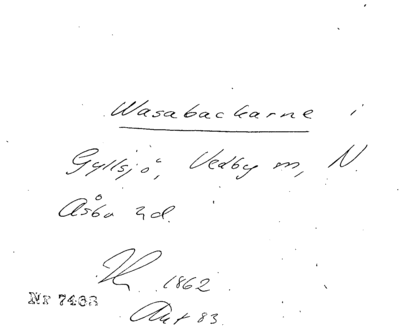 Wasabackarne i
Gyllsjö, Vedby m, N.
Åsbo hd.
1862
Nr 7463
Akt 83.